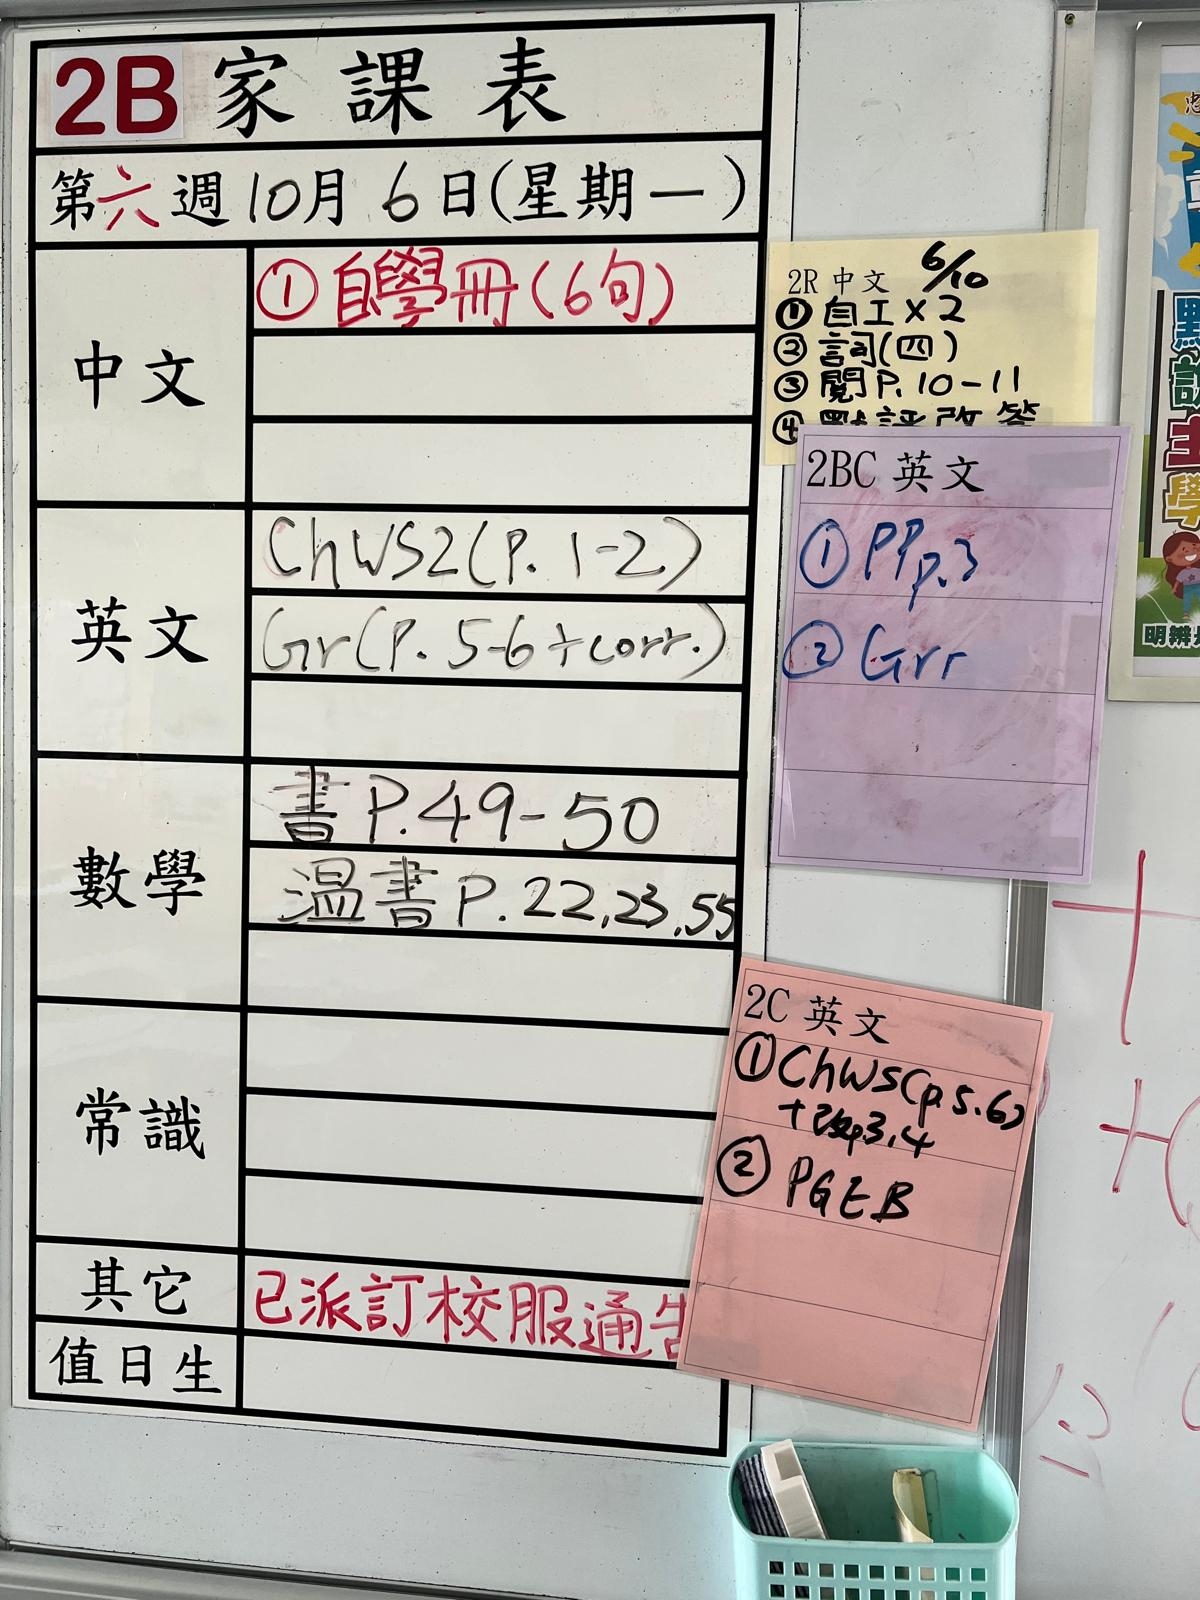 2B 家課表
第六週10月6日(星期一)
中文
① 自學冊(6句)
英文
ChWS2(P. 1-2)
Gr(P. 5-6+corr.)
數學
書P.49-50
溫書P.22,23,55
常識
其它
已派訂校服通告
值日生
2R 中文 6/10
① 自工×2
② 詞(四)
③ 閱P.10-11
④ 默評改答
2BC 英文
① PP p.3
② Grr
2C 英文
① ChWS(p.5.6)
+改p.3,4
② PGEB